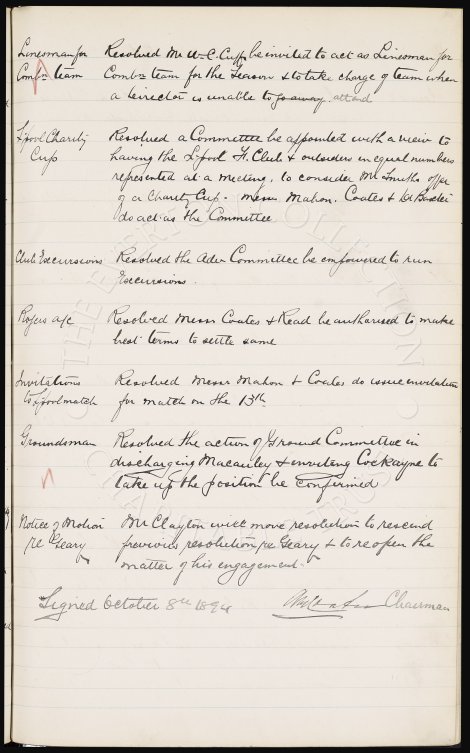 Linesman for Resolved Mr W. C. Cuff be invited to act as Linesman for
Combn team Combn team for the Season & to take charge of team when
a Director is unable to go away attend
L'pool Charity Resolved a Committee be appointed with a view to
Cup having the L'pool F. Club & outsiders in equal numbers
represented at a meeting, to consider Mr Smith's offer
of a Charity Cup. Messrs Mahon, Coates & Dr Baxter
do act as the Committee
Club Excursions Resolved the Adv Committee be empowered to run
Excursions.
Rogers a/c Resolved Messrs Coates & Read be authorised to make
best terms to settle same
Invitations Resolved Messrs Mahon & Coates do issue invitations
to L'pool match for match on the 13th
Groundsman Resolved the action of Ground Committee in
discharging Macauley & inviting Cockayne to
take up the position be confirmed
Notice of Motion Mr Clayton will move resolution to rescind
re Geary previous resolution re Geary & to re open the
matter of his engagement.
Signed October 8th 1894 Chairman
THE EVERTON COLLECTION
CHARITABLE TRUST